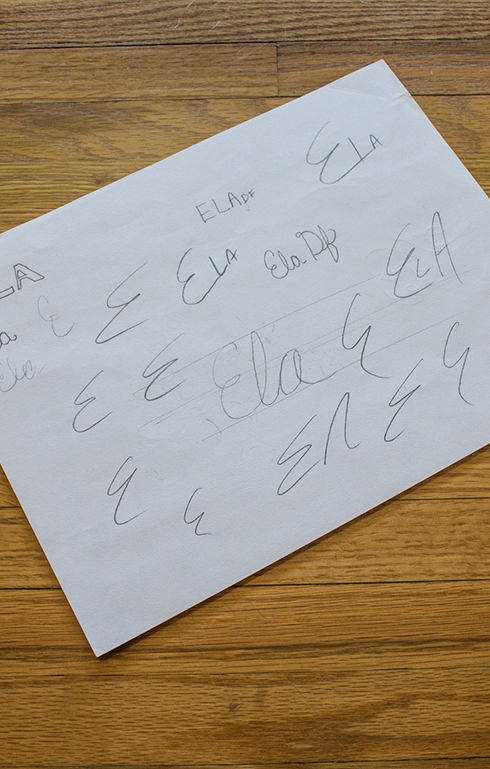 ELA
ELADF
LA
ELA
Ela Df
ELA
a
E
E
Ela
E
Ela
E
E
E
E
E
E
E